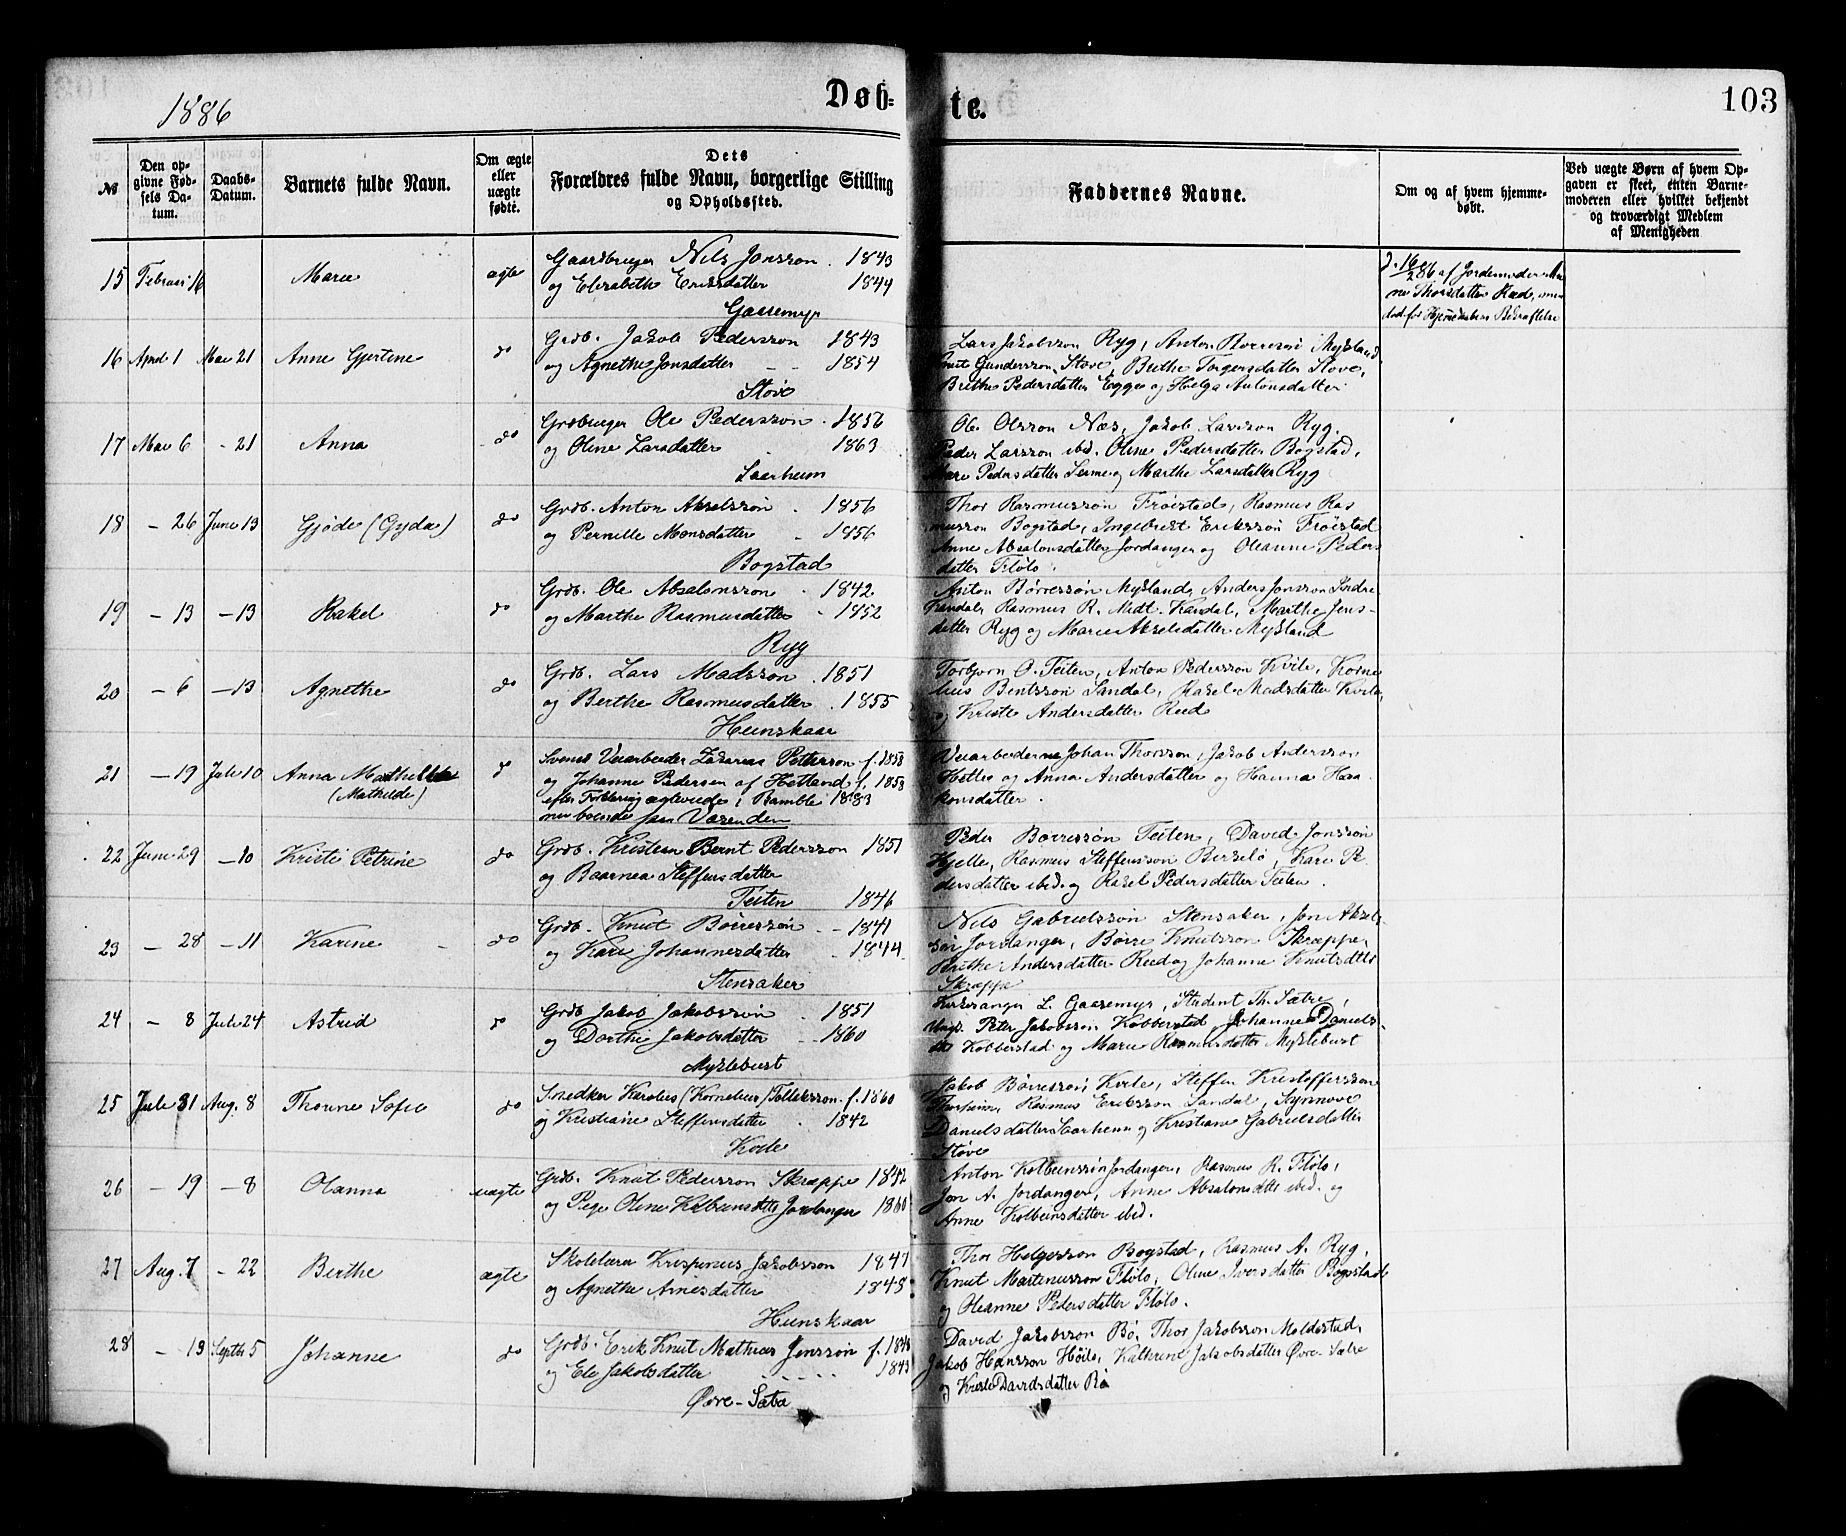 1886
Døb=
te.
103
№
Den opgivne Fødsels Datum.
Daabs-Datum.
Barnets fulde Navn.
Om ægte eller uægte født.
Dets
Forældres fulde Navn, borgerlige Stilling
og Opholdssted.
Faddernes Navne.
Om og af hvem hjemmedøbt.
Ved uægte Børn af hvem Opgaven er skeet, enten Barnemoderen eller hvilket bekjendt og troværdigt Medlem af Menigheden
15 Februar 16 Marie ægte
Gaardbruger Nils Jonsson 1843
og Elisabeth Eriksdatter 1844
Gaasemyr
16/2 86 af Jordemoder
Thorsdatter
16 April 1 Mai 21 Anne Gjertine do
Grdb. Jakob Pedersson 1843
og Agnethe Jonsdatter 1854
Støve
Lars Jakobsson Ryg, Anton Børresson Mykland
Knut Gunderssøn Støve, Berthe Torgersdatter Støve,
Brithe Pedersdatter Egge og Helga Antonsdatter
17 Mai 6 - 21 Anna do
Grdbruger Ole Pedersson 1856
og Oline Larsdatter 1863
Saarheim
Ole Olsson Næs, Jakob Larsson Ryg,
Peder Larsson ibid. Oline Pedersdatter Bogstad,
Pedersdatter og Marthe Larsdatter Ryg
18 - 26 Juni 13 Gjøde (Gyda) do
Grdb. Anton Akselssøn 1856
og Pernille Monsdatter 1856
Bogstad
Thor Rasmussøn Frøistad, Rasmus Ras
mussøn Bogstad, Ingebrigt Erikssøn Frøistad
Anne Absalonsdatter Jordanger og Oleanne Peders
datter Flølo
19 - 13 - 13 Rakel do
Grdb. Ole Absalonsson 1842
og Marthe Rasmusdatter 1852
Ryg
Anton Børressøn Mykland, Anders Jonsson Indre
Kandal, Rasmus R. Midt-Kandal, Marthe Jens-
datter Ryg og Marie Akselsdatter Mykland
20 - 6 - 13 Agnethe do
Grdb. Lars Madsson 1851
og Berthe Rasmusdatter 1855
Heimskaar
Torbjørn O. Teiten, Anton Pedersson Kvile, Korne
lius Bentsson Sandal, Rakel Madsdatter Kvile,
og Kristi Andersdatter Reed
21 - 19 Juli 10 Anna Mathilde do
(Mathilde)
Svensk Veiarbeider Zakarias Petterson f. 1858
og Johanne Pedersen af Hetland f. 1858
efter Forklaring ægteviede i Bamble 1883
nu boende paa Vørenden
Veiarbeiderne Johan Thorsson, Jakob Andersson
og Anna Andersdatter og Hanna Haa
konsdatter
22 Juni 29 - 10 Kristi Petrine do
Grdb. Kristian Bernt Pedersson 1851
og Baarnea Steffensdatter
Teiten 1846
Peder Børressøn Teiten, David Jonssøn
Hjelle, Rasmus Steffensson Berselø, Kari Pe
dersdatter ibid. og Rakel Pedersdatter Teiten
23 - 28 - 11 Karine do
Grdb. Knut Børressøn 1841
og Kari Johannesdatter 1844
Stensaker
Nils Gabrielssøn Stensaker, Jon Aksels
søn Jordanger, Børre Knutsson Skræppe,
Brithe Andersdatter Reed og Johanne Knutsdtr
Skræppe
24 - 8 Juli 24 Astrid do
Grdb Jakob Jakobssøn 1851
og Dorthe Jakobsdatter 1860
Myklebust
Kirkesanger L. Gaasemyr, Student Th. Sætre,
Ungk. Peter Jakobssøn Kobberstad, Johanne Daniels
dtr Kobberstad og Marie Rasmusdatter Myklebust
25 Juli 31 Aug. 8 Thorine Sofie do
Snedker Karolus/Kornelius/Tolleksson f. 1860
og Kristiane Steffensdatter 1842
Kvile
Jakob Børressøn Kvile, Steffen Kristoffersson
Rasmus Eriksson Sandal, Synnøve
Danielsdatter Saarheim og Kristiane Gabrielsdatter
Støve
26 - 19 - 8 Olanna uægte
Grdb. Knut Pedersson Skræppe 1842
og Pige Oline Kolbeinsdtr Jordanger 1860
Anton Kolbeinssøn Jordanger, Rasmus R. Fløto,
Jon A. Jordanger, Anne Absalonsdtr ibid. og
Anne Kolbeinsdatter ibid.
27 Aug. 7 - 22 Berthe ægte
Skolelærer Krispinus Jakobsson 1847
og Agnethe Arnesdatter 1848
Heimskaar
Thor Helgesson Bogstad, Rasmus A. Ryg,
Knut Martinusson Fløto, Oline Iversdatter Bogstad
og Oleanne Pedersdatter Fløto.
28 - 19 Septbr 5 Johanne do
Grdb. Erik Knut Mathias Jonssøn f. 1848
og Eli Jakobsdatter 1843
Øvre-Sæta
David Jakobsson Bø, Thor Jakobsson Moldestad,
Jakob Hansson Høilo, Kathrine Jakobsdatter Øvre-Sætre
og Kristi Davidsdatter Bø